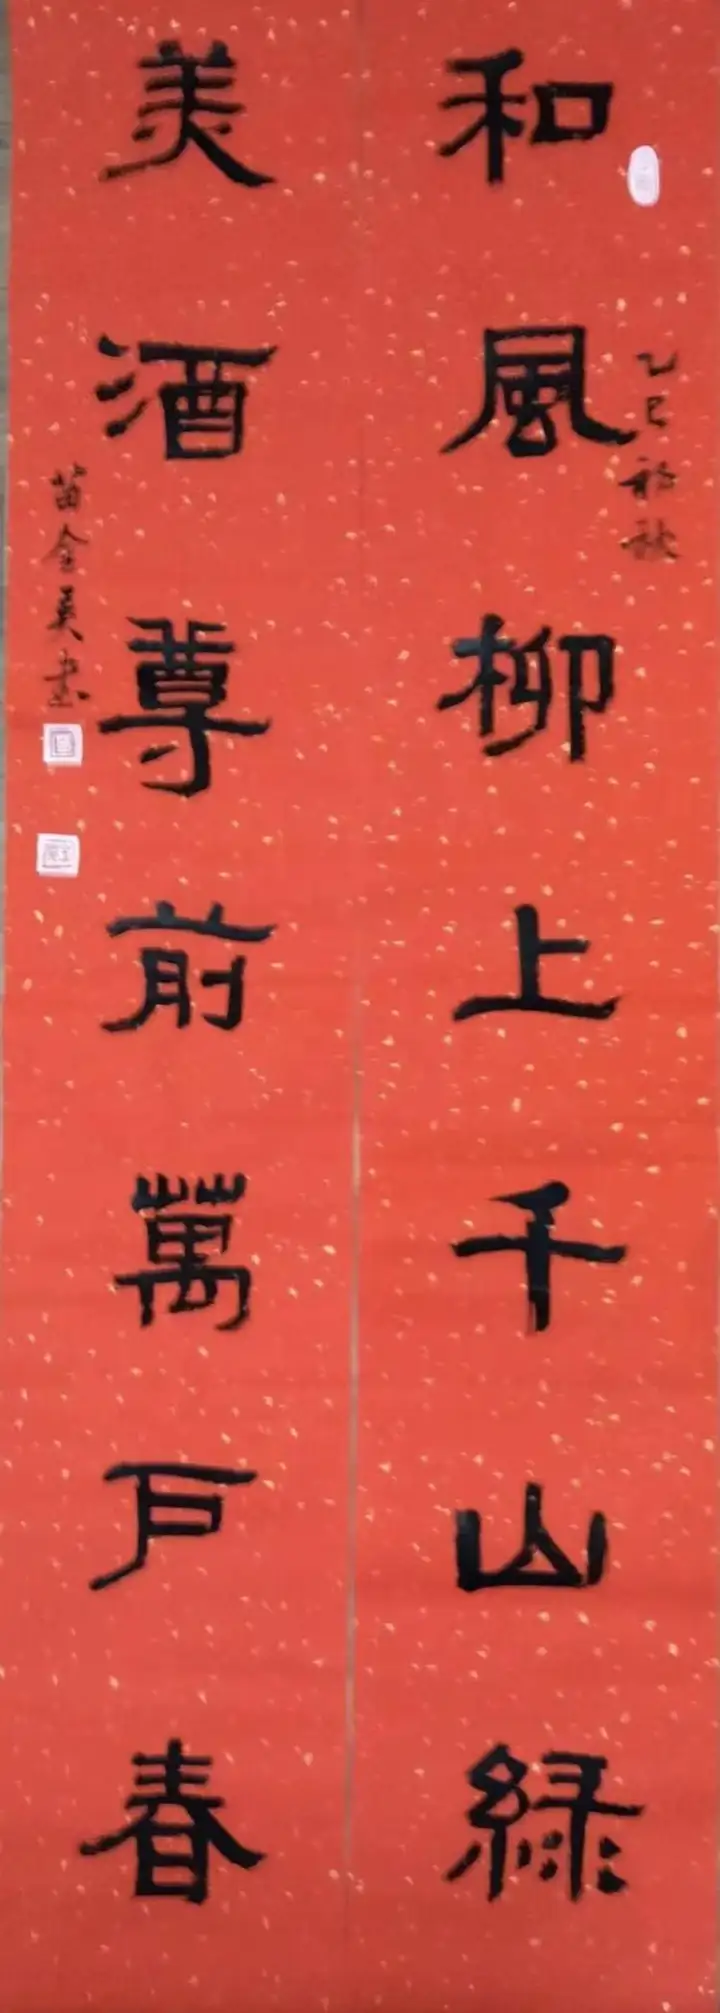 和風柳上千山緑
乙巳初秋
美酒尊前萬户春
苗金英书